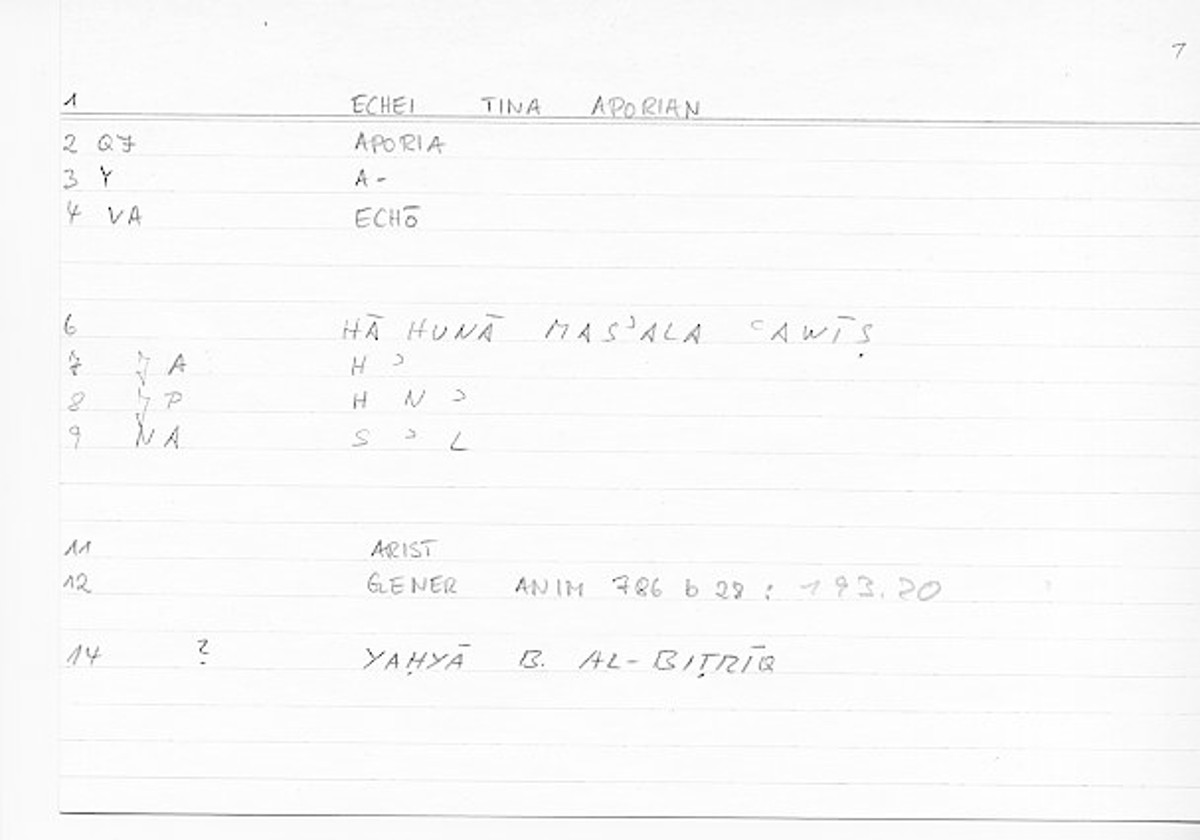 1
1 ECHEI TINA APORIAN
2 Q7 APORIA
3 Y A-
4 VA ECHŌ
6 HĀ HUNĀ MASʾALA ʿAWĪṢ
7 A H ʾ
8 P H N ʾ
9 NA S ʾ L
11 ARIST
12 GENER ANIM 786 b 28 : 193.20
14 ? YAḤYĀ B. AL-BIṬRĪQ